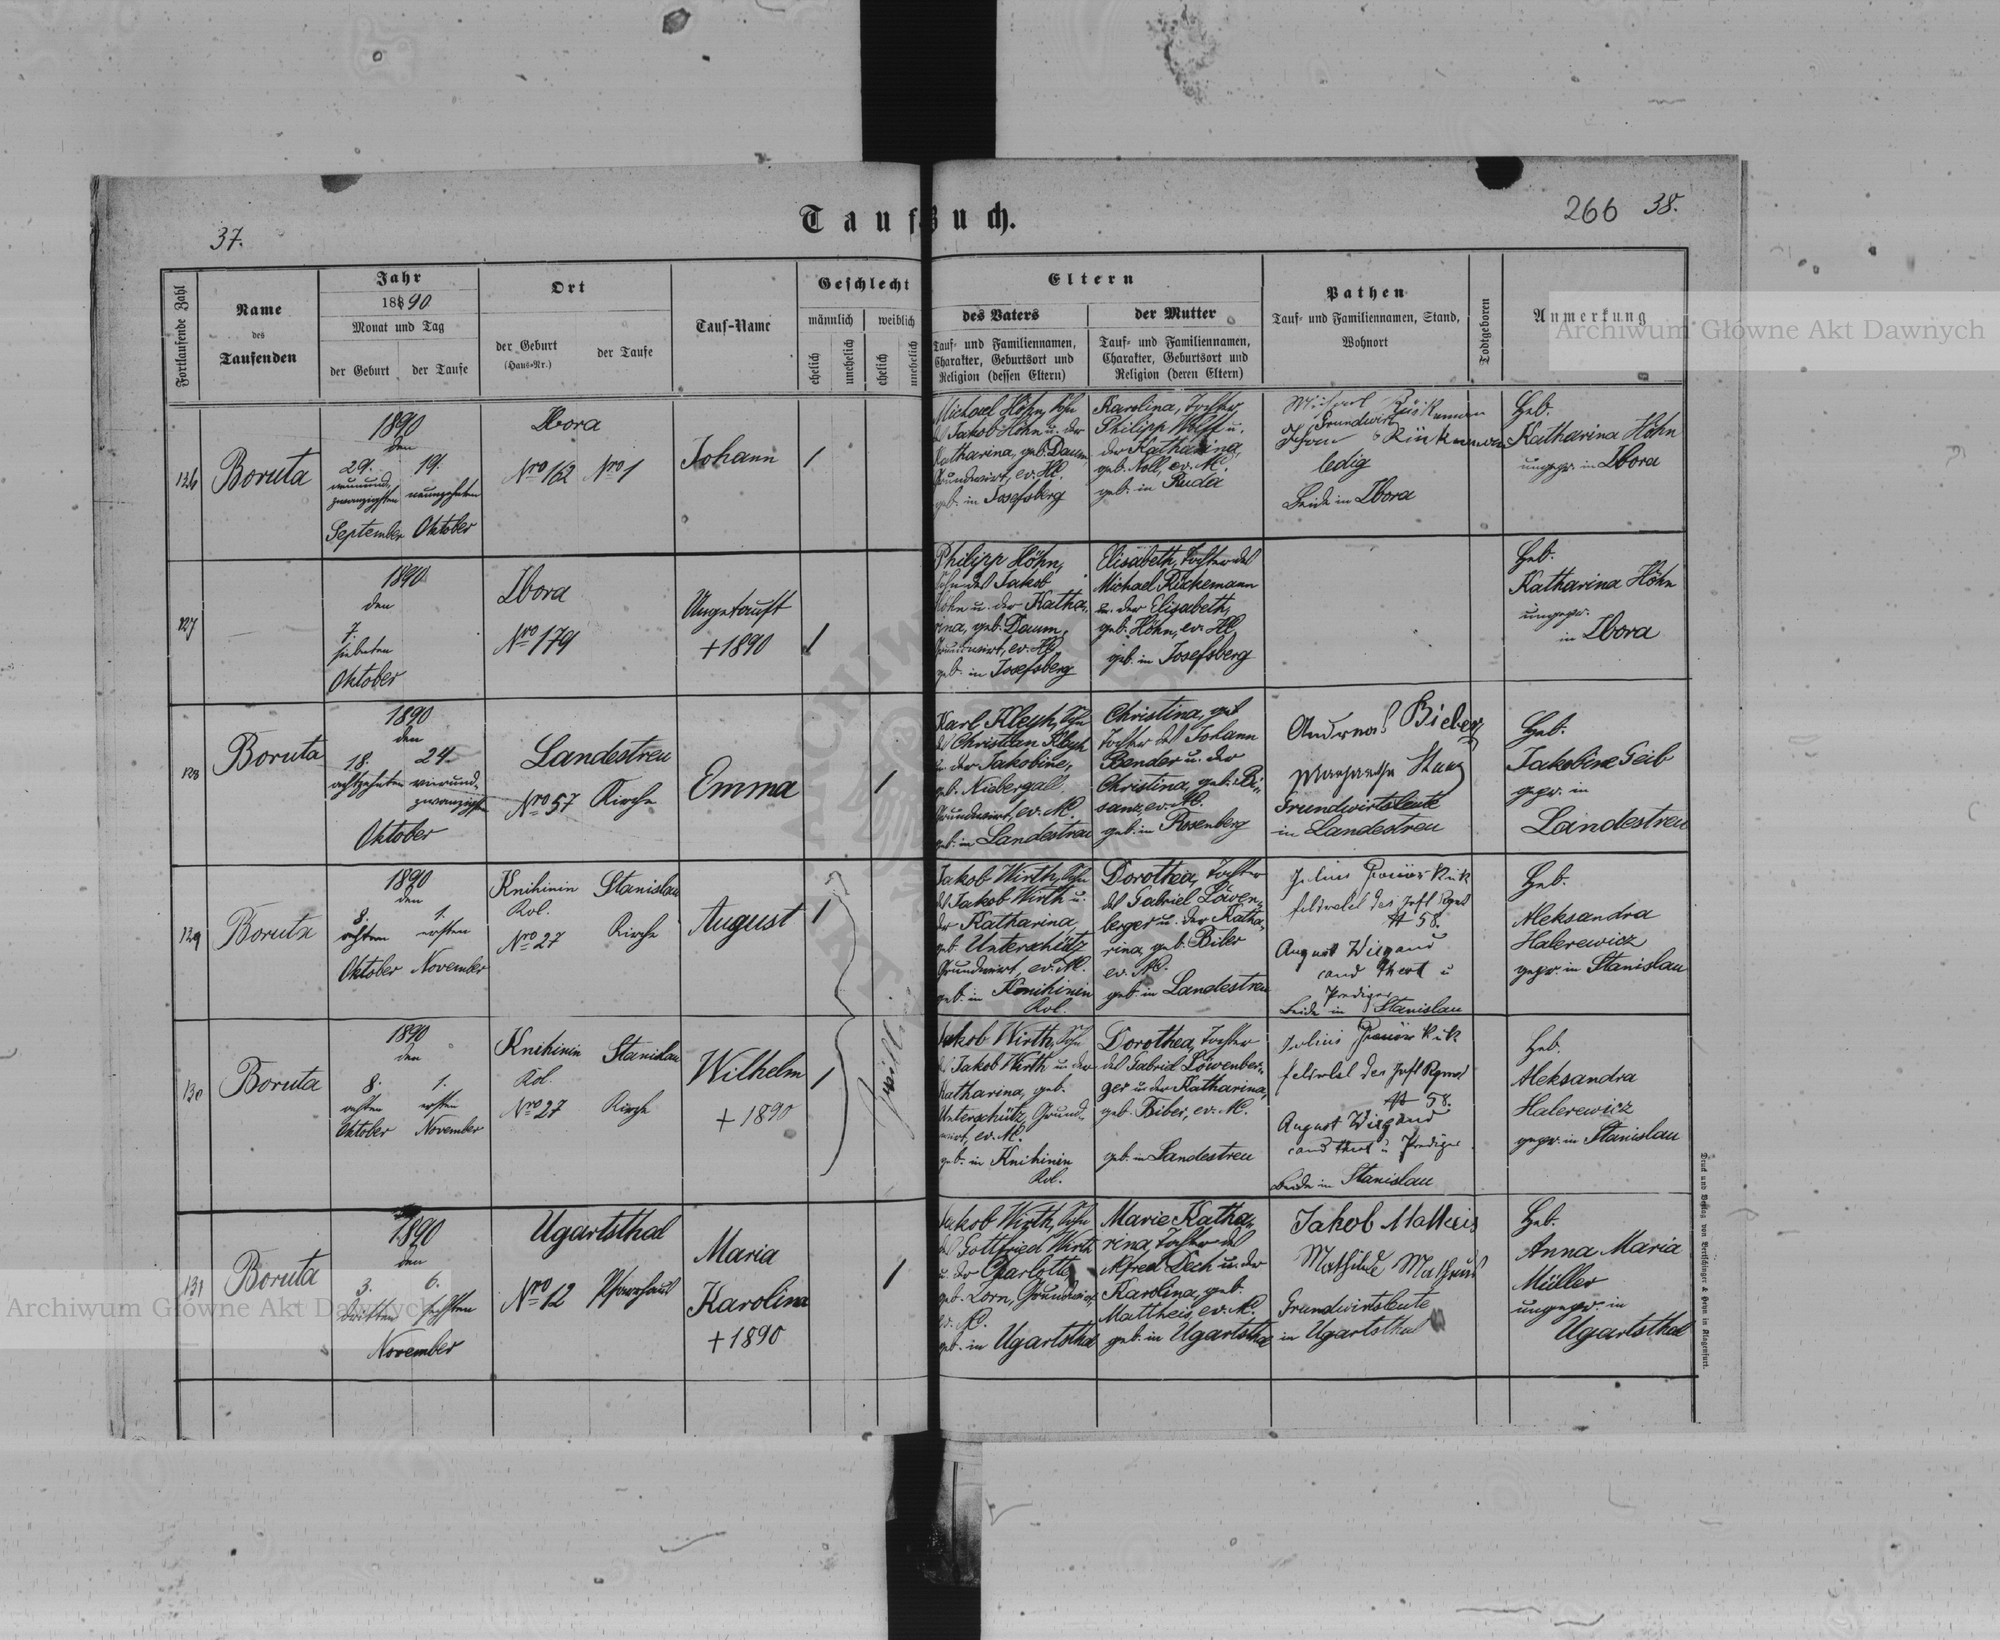 37.
Taufbuch.
266 38.
Fortlaufende Zahl
Name
des
Taufenden
Jahr
1890
Monat und Tag
der Geburt
der Taufe
Ort
der Geburt
(Haus-Nr.)
der Taufe
Tauf-Name
Geschlecht
männlich
weiblich
ehelich
unehelich
ehelich
unehelich
Eltern
des Vaters
Tauf- und Familiennamen,
Charakter, Geburtsort und
Religion (dessen Eltern)
der Mutter
Tauf- und Familiennamen,
Charakter, Geburtsort und
Religion (deren Eltern)
Pathen
Tauf- und Familiennamen, Stand,
Wohnort
Todtgeboren
Anmerkung
126
Boruta
1890
den
29. 19.
neunund-
zwanzigsten neunzehnten
September Oktober
Ibora
Nro 162 Nro 1
Johann
1
Michael Höhn, Sohn
des Jakob Höhn u. der
Katharina, geb. Daum,
Grundwirt, ev. HC.
geb. in Josefsberg
Karolina, Tochter
Philipp Wolff u.
der Katharina,
geb. Noll, ev. AC.
geb. in Ruda
Grundwirt
ledig
Beide in Ibora
Heb.
Katharina Höhn
ungepr. in Ibora
127
1890
den
7.
siebenten
Oktober
Ibora
Nro 179
Ungetauft
+ 1890
1
Philipp Höhn,
Sohn des Jakob
Höhn u. der Katha-
rina, geb. Daum,
Grundwirt, ev. HC.
geb. in Josefsberg
Elisabeth, Tochter des
Michael Rückemann
u. der Elisabeth,
geb. Höhn, ev. HC
geb. in Josefsberg
Heb.
Katharina Höhn
ungepr.
in Ibora
128
Boruta
1890
den
18. 24.
achtzehnten vierund-
zwanzigsten
Oktober
Landestreu
Nro 57 Kirche
Emma
1
Karl Kleyh, Sohn
des Christian Kleyh
u. der Jakobine,
geb. Niebergall,
Grundwirt, ev. AC.
geb. in Landestreu
Christina,
Tochter des Johann
Bender u. der
Christina, geb. Bi-
sanz, ev. AC.
geb. in Rosenberg
Andreas Bieber
Margaretha
Grundwirtsleute
in Landestreu
Heb.
Jakobine Geib
gepr. in
Landestreu
129
Boruta
1890
den
8. 1.
achten ersten
Oktober November
Knihinin Stanislau
Kol.
Nro 27 Kirche
August
1
Jakob Wirth, Sohn
des Jakob Wirth u.
der Katharina,
geb. Unterschütz
Grundwirt, ev. AC.
geb. in Knihinin
Kol.
Dorothea, Tochter
des Gabriel Löwen-
berger u. der Katha-
rina, geb. Biber
ev. AC.
geb. in Landestreu
Julius
Feldwebel des
No 58.
August Wiegand
cand theol u
Prediger
Beide in Stanislau
Heb.
Aleksandra
Halerewicz
gepr. in Stanislau
Zwillinge
130
Boruta
1890
den
8. 1.
achten ersten
Oktober November
Knihinin Stanislau
Kol.
Nro 27 Kirche
Wilhelm
+ 1890
1
Jakob Wirth, Sohn
des Jakob Wirth u. der
Katharina, geb.
Unterschütz, Grund-
wirt, ev. AC.
geb. in Knihinin
Kol.
Dorothea, Tochter
des Gabriel Löwenber-
ger u. der Katharina,
geb. Biber, ev. AC.
geb. in Landestreu
Julius
Feldwebel des
No 58.
August Wiegand
cand theol u Prediger
Beide in Stanislau
Heb.
Aleksandra
Halerewicz
gepr. in Stanislau
131
Boruta
1890
den
3. 6.
dritten sechsten
November
Ugartsthal
Nro 12 Pfarrhaus
Maria
Karolina
+ 1890
1
Jakob Wirth, Sohn
des Gottfried Wirth
u. der Charlotte,
geb. Zorn, Grundwirt,
ev. AC.
geb. in Ugartsthal
Marie Katha-
rina, Tochter des
Alfred Dech u. der
Karolina, geb.
Mattheis, ev. AC.
geb. in Ugartsthal
Jakob Mattheis
Mathilde Mattheis
Grundwirtsleute
in Ugartsthal
Heb.
Anna Maria
Müller
ungepr. in
Ugartsthal
Druck und Verlag von Bertschinger & Heyn in Klagenfurt.
Archiwum Główne Akt Dawnych
Archiwum Główne Akt Dawnych